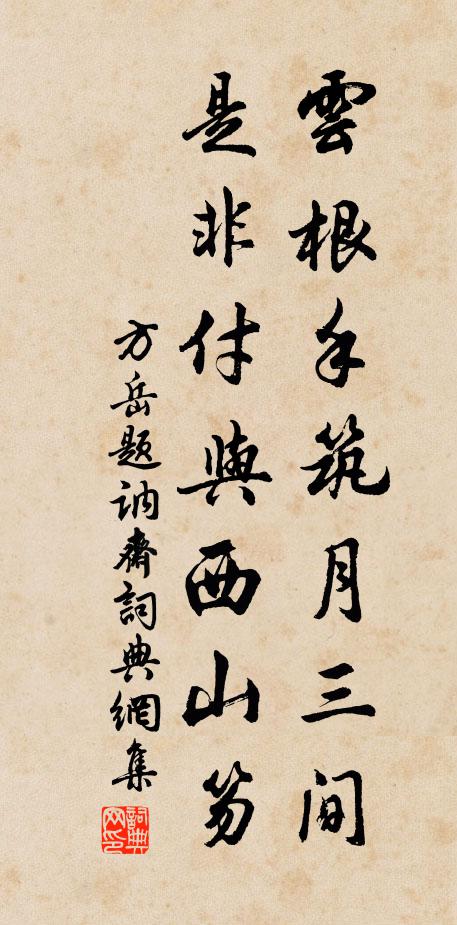 雲根手筑月三间
是非付與西山笏
方岳题訥齋詞典網集
詞典
网印